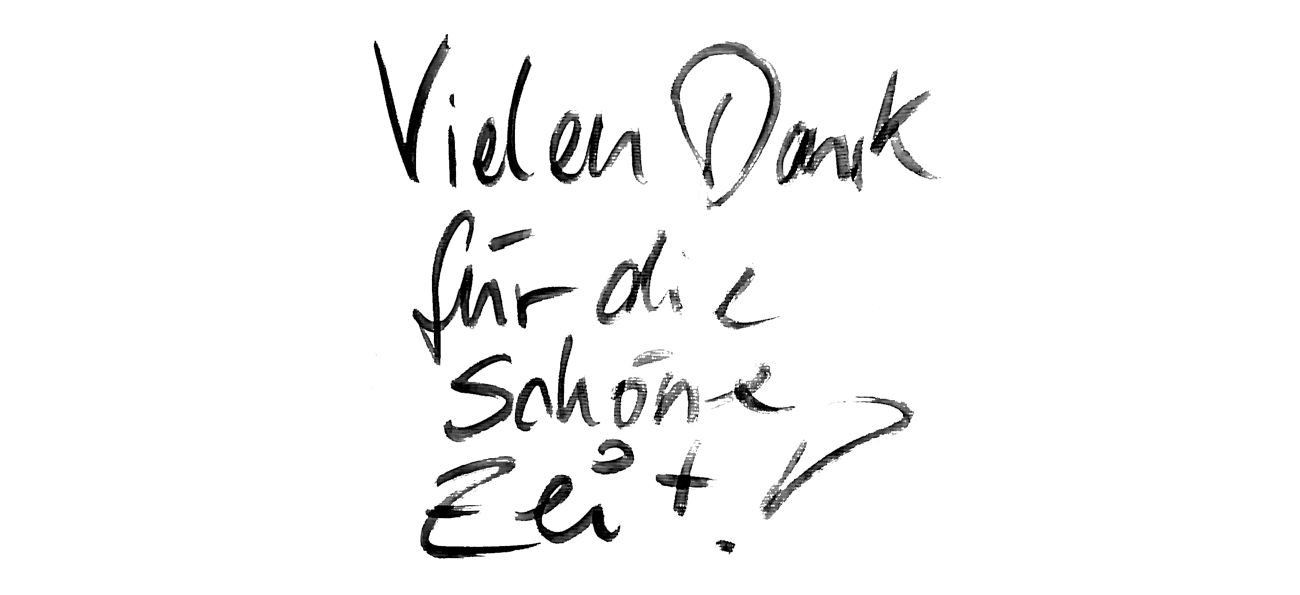 Vielen Dank
für die
schöne
Zeit!